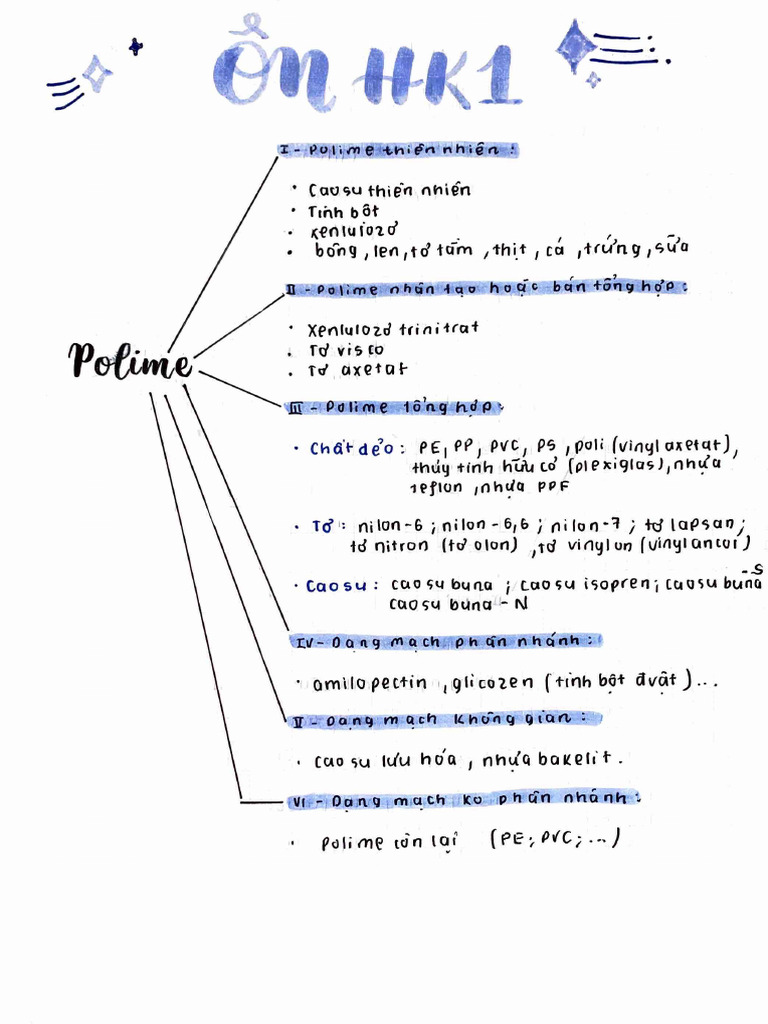 ÔN HK1
I - Polime thiên nhiên :
• Cao su thiên nhiên
• Tinh bột
• Xenlulozơ
• bông , len , tơ tằm , thịt , cá , trứng , sữa
II - Polime nhân tạo hoặc bán tổng hợp :
• Xenlulozơ trinitrat
• Tơ visco
• Tơ axetat
Polime
III - Polime tổng hợp :
• Chất dẻo : PE, PP, PVC, PS , poli (vinyl axetat),
thủy tinh hữu cơ (plexiglas), nhựa
teflon , nhựa PPF
• Tơ : nilon-6 ; nilon - 6,6 ; nilon-7 ; tơ lapsan ;
tơ nitron (tơ olon) , tơ vinylon (vinylancol)
• Cao su : cao su buna ; cao su isopren ; cao su buna - S
cao su buna - N
IV - Dạng mạch phân nhánh :
• amilopectin , glicozen (tinh bột đvật) ...
V - Dạng mạch không gian :
• cao su lưu hóa , nhựa bakelit .
VI - Dạng mạch ko phân nhánh :
• Polime còn lại (PE ; PVC ; ...)